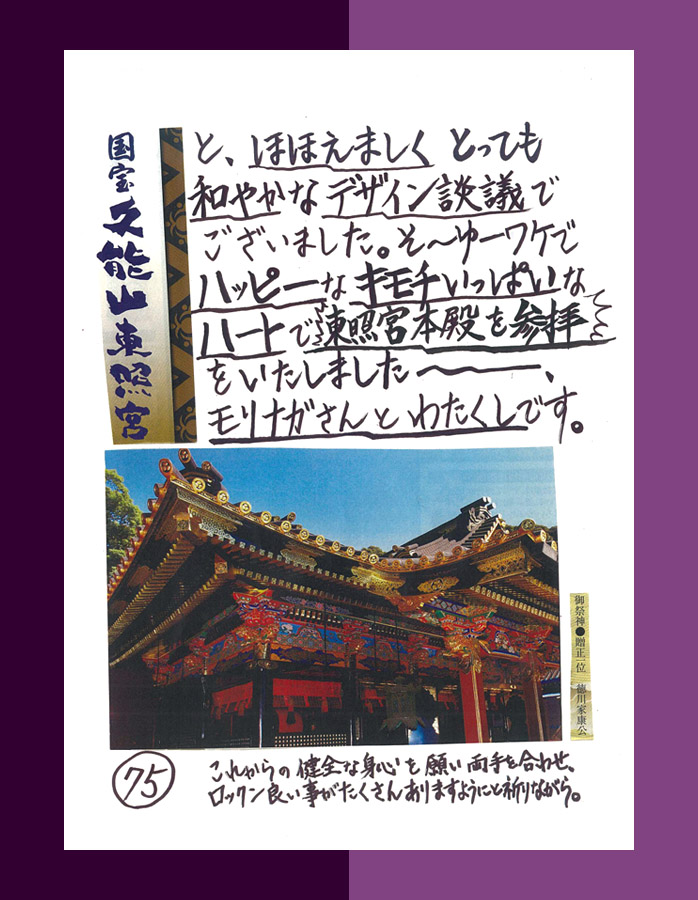 国宝 久能山東照宮
と、ほほえましく とっても
和やかな デザイン談議で
ございました。そ〜ゆーワケで
ハッピーな キモチいっぱいな
ハートで東照宮本殿を参拝
をいたしました〜――、
モリナガさんとわたくしです。
御祭神●贈正一位 徳川家康公
75
これからの健全な身心を願い両手を合わせ、
ロックン良い事がたくさんありますようにと祈りながら。